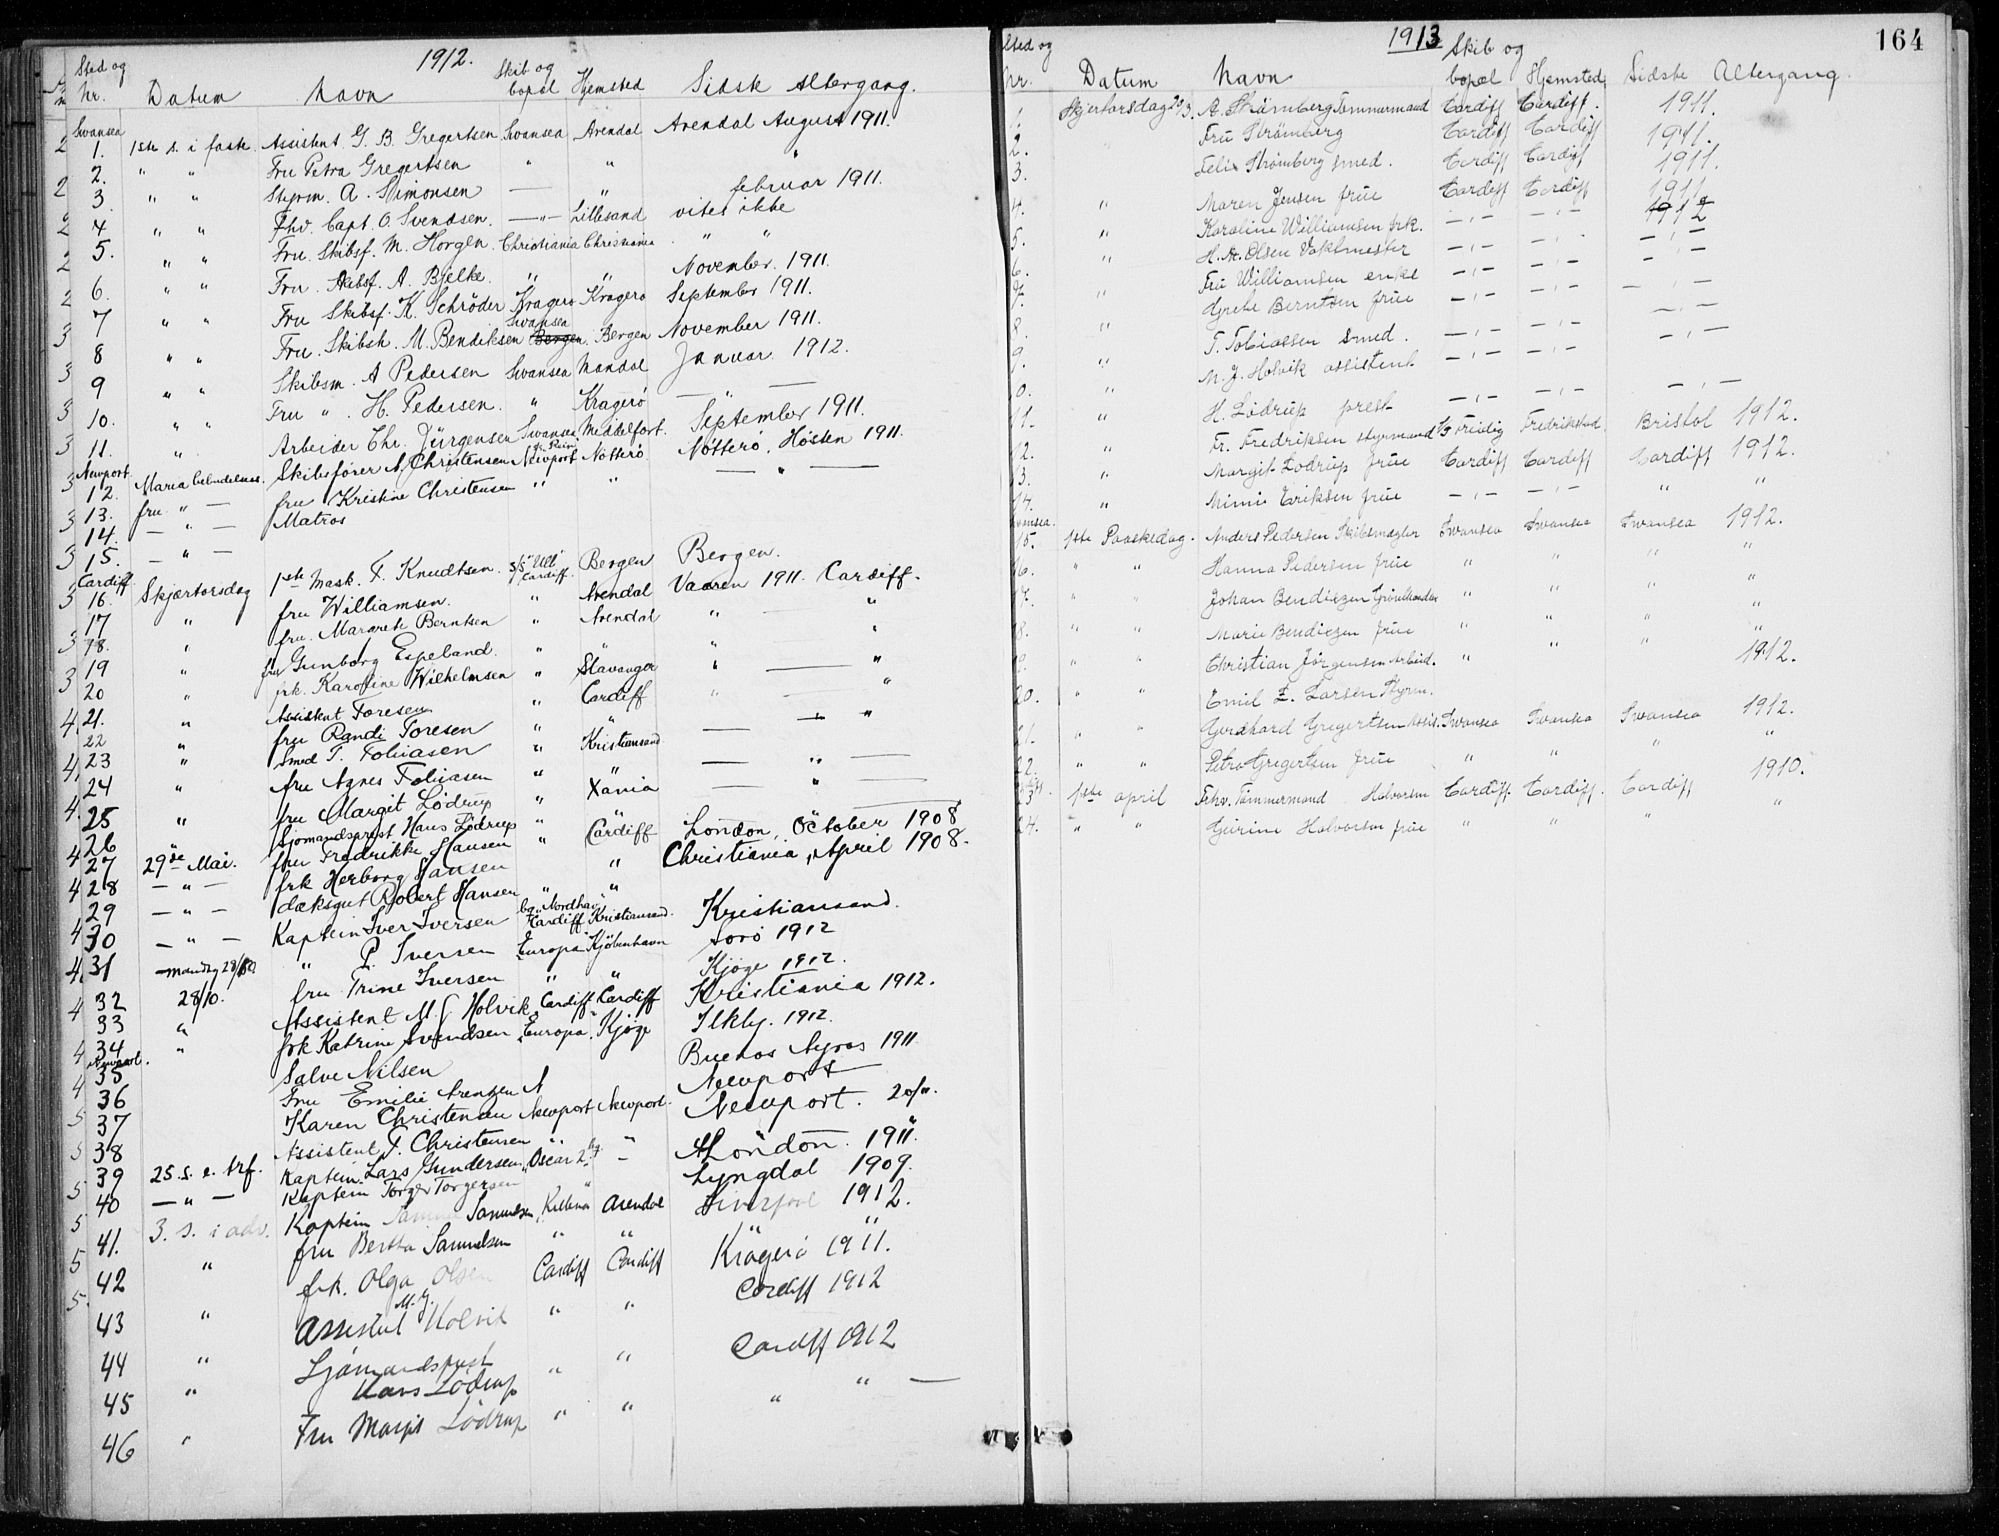 1912.
Sted og Nr. Datum Navn Skib og bopæl Hjemsted Sidste Altergang.
Swansea
1. 1ste s. i faste. Assistent G. B. Gregertsen Swansea Arendal Arendal August 1911.
2. " " Fru Petra Gregertsen " " "
3. " " Styrm. A. Simonsen — " februar 1911.
4 " " Fhv. Capt. O. Svendsen. —"— Lillesand vites ikke
5. " " Fru. Skibsf. M. Horgen. Christiania Christiania " "
6. " " Fru. Skibsf. A. Bjelke. " " November. 1911.
7 " " Fru Skibsf. K. Schröder Kragerø Kragerø September 1911.
8 " " Fru. Skibsh. M. Bendiksen Swansea Bergen. Bergen November 1911.
9 " " Skibsm. A Pedersen Swansea Mandal Januar 1912.
10. " " Fru " H. Pedersen. " Kragerö — " —
11. " Arbeider Chr. Jürgensen Swansea Middelfart. September 1911.
Newport
12. Maria bebudelses. Skibsfører A. Christensen Newport Nötterö Nötterö, Hösten 1911.
13. fru " — fru Kristine Christensen " " — " —
14. — " — Matros
15. — " —
Cardiff
16. Skjærtorsdag 1ste Mask. F. Knudtsen. S/S "Ull" Cardiff. Bergen Bergen.
17 " fru Williamsen. " Arendal Vaaren 1911. Cardiff.
18. " fru. Margrete Berntsen " Arendal " — "
19 " fru Gunborg Espeland. " " " "
20 " frk. Karoline Wilhelmsen " Stavanger " — "
21. " Assistent Toresen " Cardiff " "
22 " fru Randi Toresen " " — " "
23 " Smed T. Tobiasen " Kristiansand —
24 " fru Agnes Tobiasen " " — " —
25 " fru Margit Lödrup " Xania — " —
26 Sjømandsprest Hans Lödrup " "
27 29de Mai. fru Fredrikke Hansen " Cardiff London, October 1908
28 — " — frk Herborg Hansen " Christiania, April 1908.
29 — " — dæksgut Robert Hansen " "
30 — " — Kaptein Iver Iversen bq "Nordhav" Cardiff Kristiansand. Kristiansand.
31 mandag 28/10 " P. Iversen Europa Kjöbenhavn Sorö 1912
32 28/10. fru Trine Iversen " " Kjöge 1912.
33 " Assistent M. J Holvik Cardiff Cardiff Kristiania 1912.
34 " frk Katrine Svendsen "Europa". Kjöge Ilkly. 1912.
Newport.
35 Salve Nilsen Buenos Ayres 1911
36 Fru Emilie Arentzen N Newport
37 Karen Christensen Newport Newport. Newport.
38 Assistent F. Christensen " "
39 25. s. e. tref. Kaptein. Lars Gundersen "Oscar 2" — London. 1911.
40 — " — Kaptein Torger Torgersen Lyngdal 1909.
41. 3. s. i adv. Kaptein Samuelsen Arendal Liverpool 1912.
42 " fru Bertha Samuelsen " " "
43 " frk. Olga Olsen Cardiff Cardiff Kragerö 1911.
44 " Assistent M. J. Holvik " " Cardiff 1912
45 " Sjömandsprest Hans Lödrup " " Cardiff 1912
46 " Fru Margit Lödrup " " " " —
1913
164
Sted og Nr. Datum Navn Skib og bopæl Hjemsted Sidste Altergang.
1. Skjertorsdag 20/3. A. Strømberg Tømmermand Cardiff Cardiff. 1911.
2. " Fru Strömberg Cardiff Cardiff 1911.
3. Felix Strømberg smed. Cardiff Cardiff 1911.
4. " Maren Jensen frue Cardiff Cardiff 1911.
5. " Karoline Williamsen frk. —"— —"— 1912
6. " H. A. Olsen Vaktmester —"— —"— —"—
7. " Fru Williamsen enke —"— —"— —"—
8. " Grete Berntsen frue —"— —"— —"—
9. " T. Tobiassen Smed. —"— —"— —"—
0. " M. J. Holvik assistent —"— —"— —"—
11. " H. Lödrup prest —"— —"— —"—
12. " Fr. Fredriksen styrmand S/S Freidig Fredrikstad Bristol 1912.
13. " Margit Lodrup frue Cardiff Cardiff Cardiff 1912.
14. " Mimi Eriksen frue —"— —"— " "
Swansea.
15. 1ste Paaskedag. Anders Pedersen Skibsmægler Swansea Swansea Swansea 1912.
16. " " Hanna Pedersen frue " " " "
17. " " Johan Bendiczen " " " "
18. " " Marie Bendiczen frue " " " "
19. " " Christian Jørgensen Arbeid. " 1912.
20. " " Emil E. Larsen Styrm.
21. " " Gerdhard Gregertsen Assis. Swansea Swansea Swansea 1912.
22. " " Petra Gregertsen frue " " " "
23. 1ste april Fhv. Tømmermand Halvorsen Cardiff. Cardiff. Cardiff 1910.
24. " " Gurine Halvorsen frue " " " "